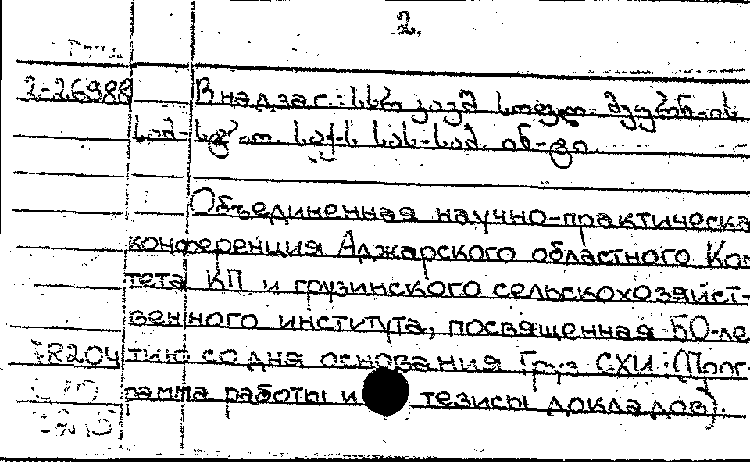 2.
2-26988 В надзаг.: სსრ კავშ. სოფლ. მეურნ-ის
სამ-
Объединенная научно-практическа
конференция Аджарского областного Ком
тета КП и грузинского сельскохозяйст-
венного института, посвященная 50-ле
тию со дня основания Груз СХИ: (Прог-
рамма работы и тезисы докладов).